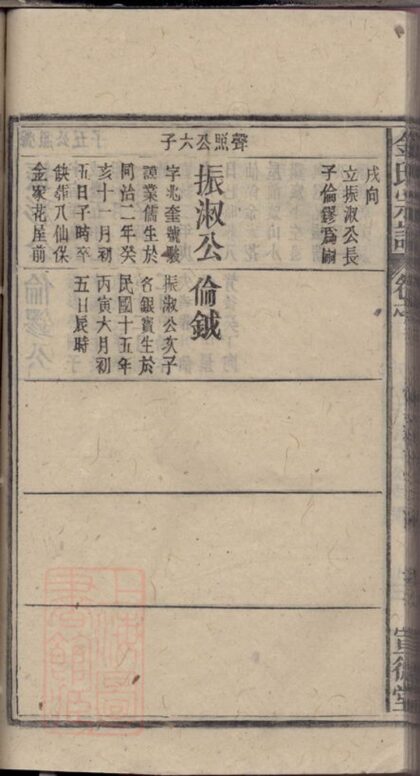 金氏宗譜
聲照公六子
戌向
立振淑公長
子倫鏐為嗣
振淑公
字兆奎號駿
謨業儒生於
同治二年癸
亥十一月初
五日子時卒
缺葬八仙保
金家花屋前
倫鉞
振淑公次子
名銀寶生於
民國十五年
丙寅六月初
五日辰時
上海圖
書館藏